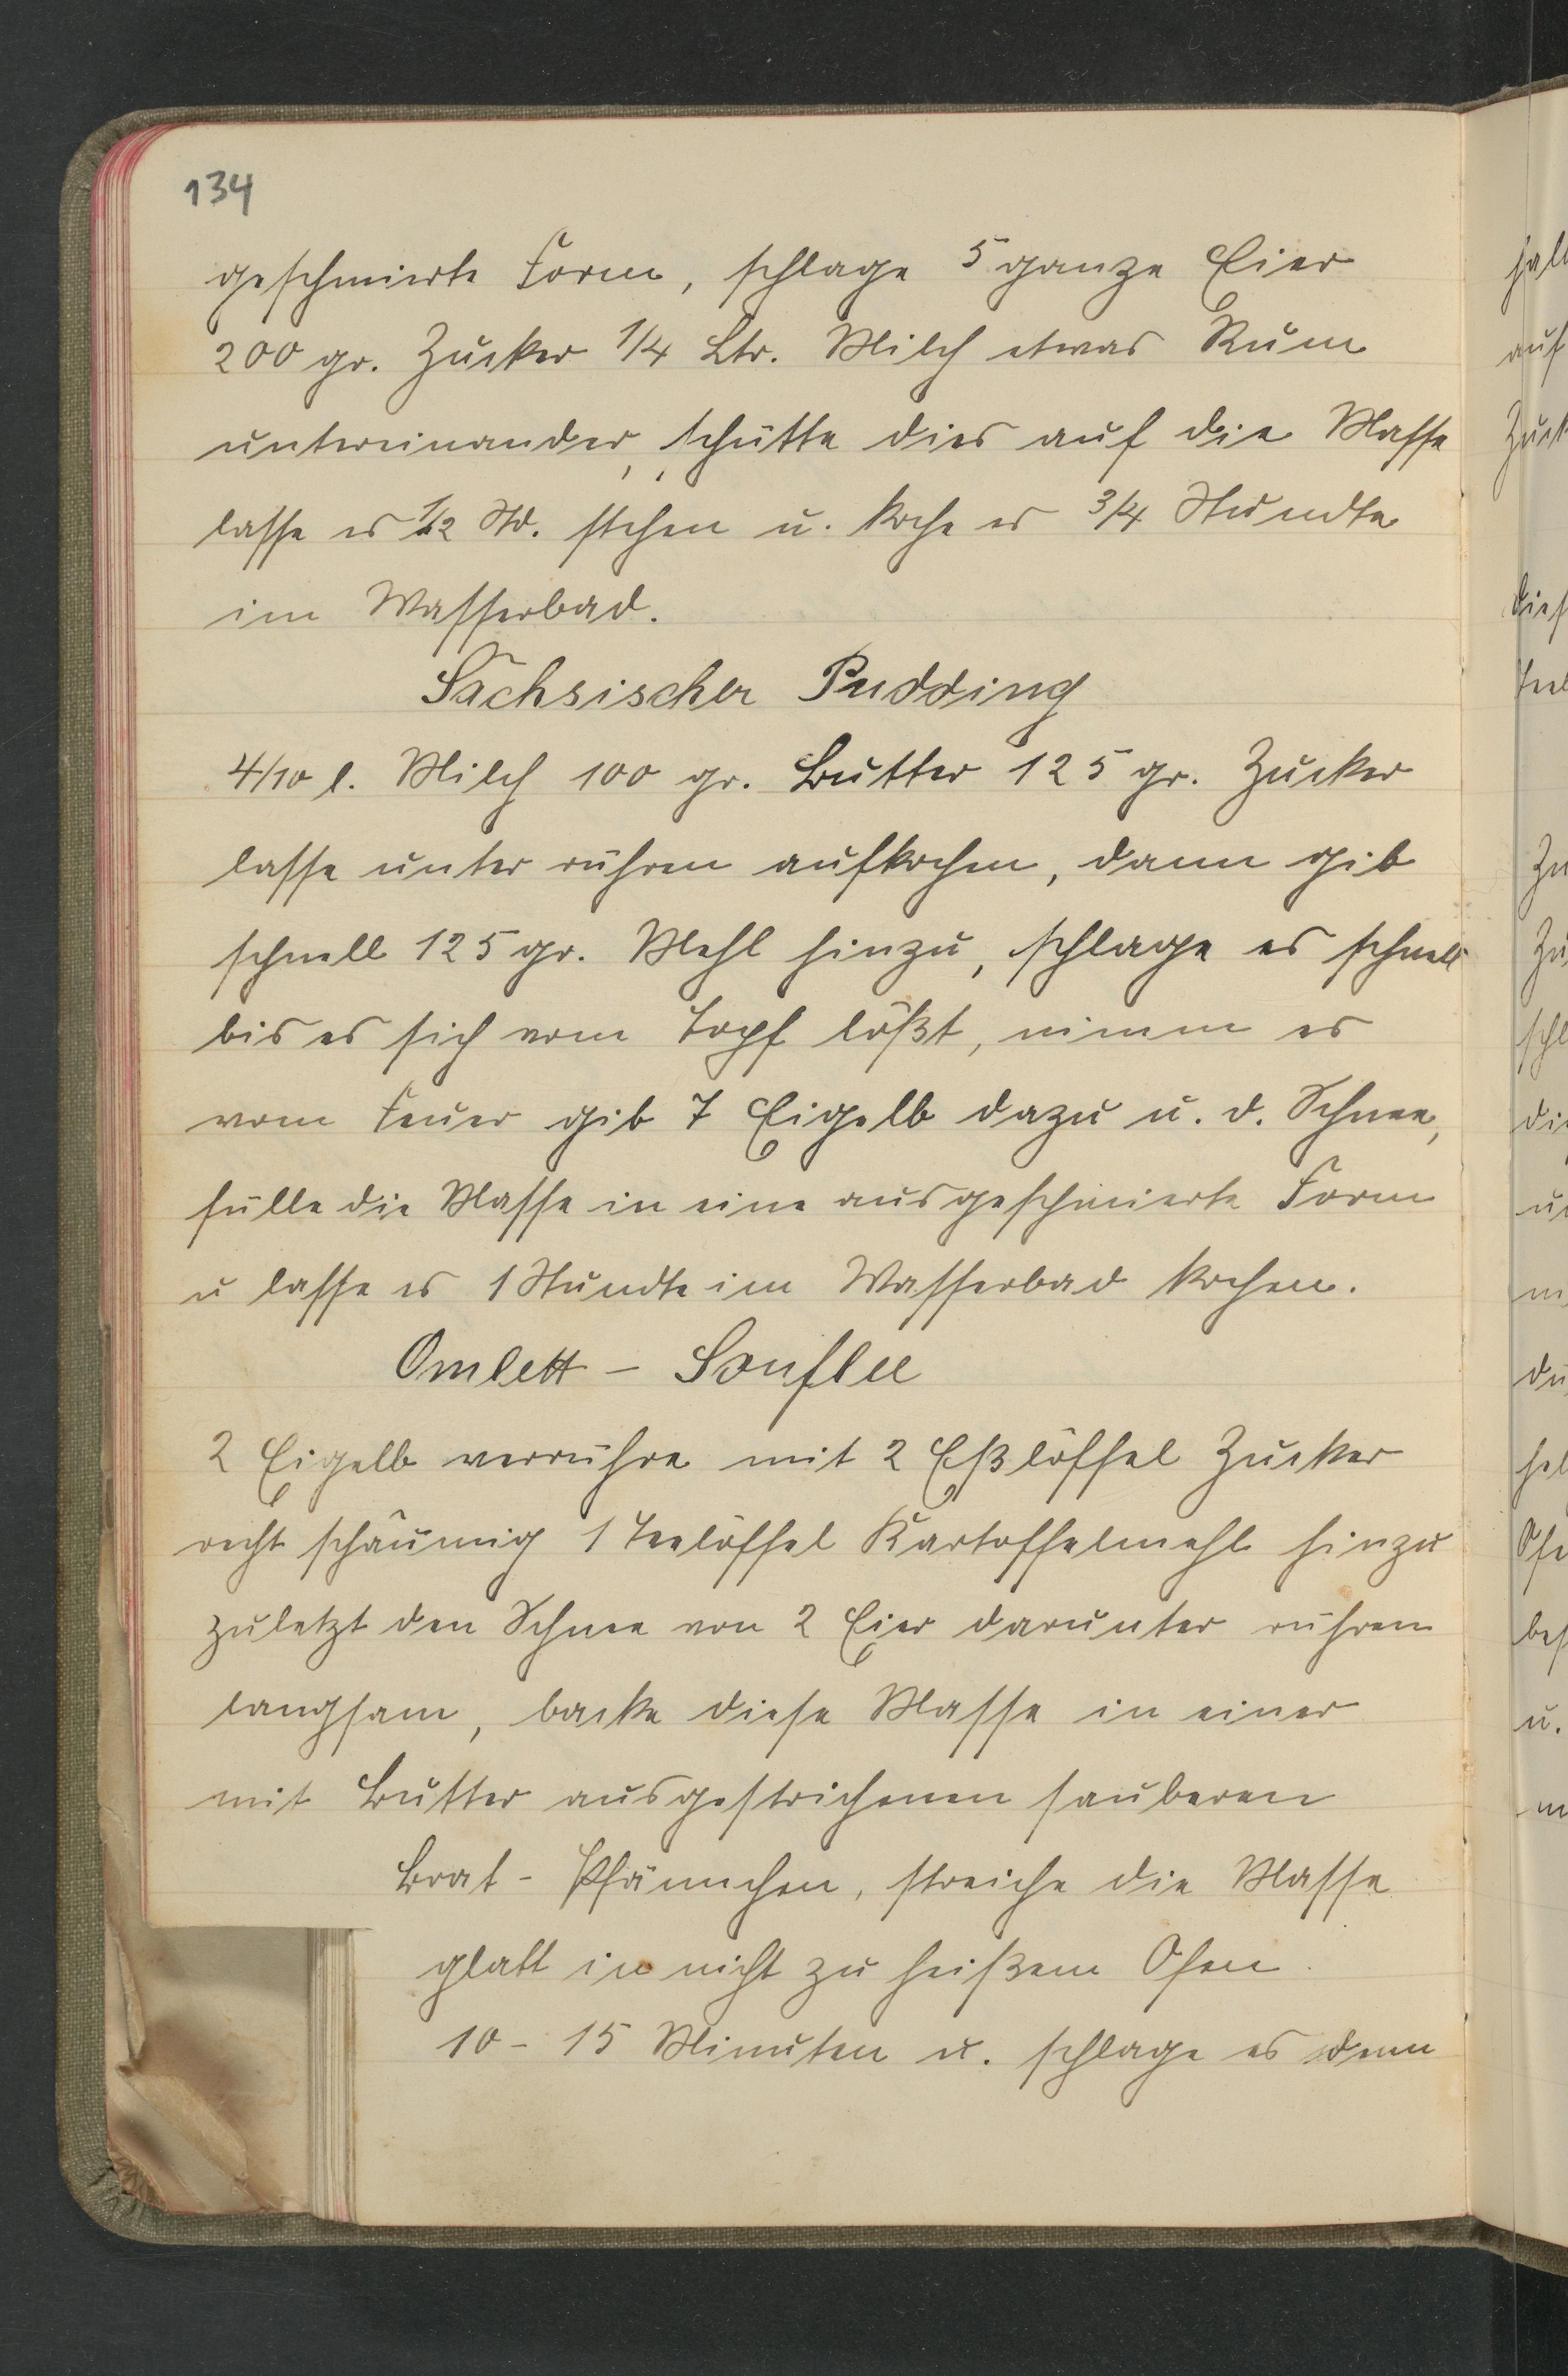 134
geschmierte Form, schlage 5 ganze Eier
200 gr. Zucker 1/4 Ltr. Milch etwas Rum
untereinander, schütte dies auf die Masse
lasse es 1/2 Std. stehen u. koche es 3/4 Stundte
im Wasserbad.
Sächsischer Pudding
4/10 l. Milch 100 gr. Butter 125 gr. Zucker
lasse unter rühren aufkochen, dann gib
schnell 125 gr. Mehl hinzu, schlage es schnell
bis es sich vom Topf lößt, nimm es
vom Feuer gib 7 Eigelb dazu u. d. Schnee,
fülle die Masse in eine ausgeschmierte Form
u lasse es 1 Stundte im Wasserbad kochen.
Omlett - Souflee
2 Eigelb verrühre mit 2 Eßlöffel Zucker
recht schäumig 1 Teelöffel Kartoffelmehl hinzu
zuletzt den Schnee von 2 Eier darunter rühren
langsam, backe diese Masse in einer
mit Butter ausgestrichenen sauberen
Brat-Pfännchen, streiche die Masse
glatt in nicht zu heißem Ofen.
10 - 15 Minuten u. schlage es denn